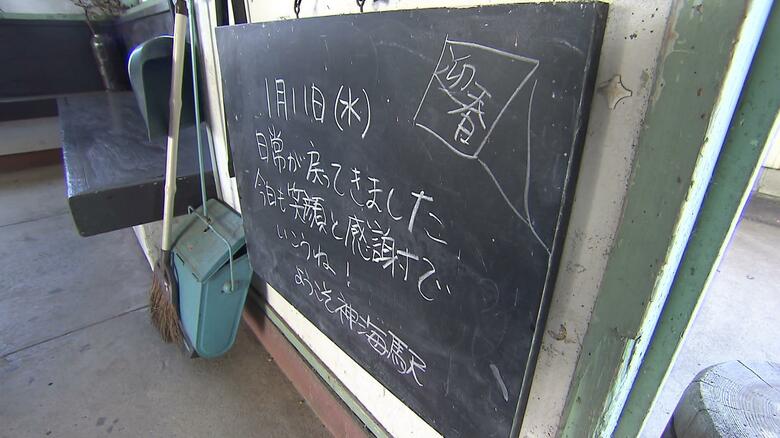 迎春
1月11日(水)
日常が戻ってきました
今日も笑顔と感謝で
いこうね！
ようこそ神海駅